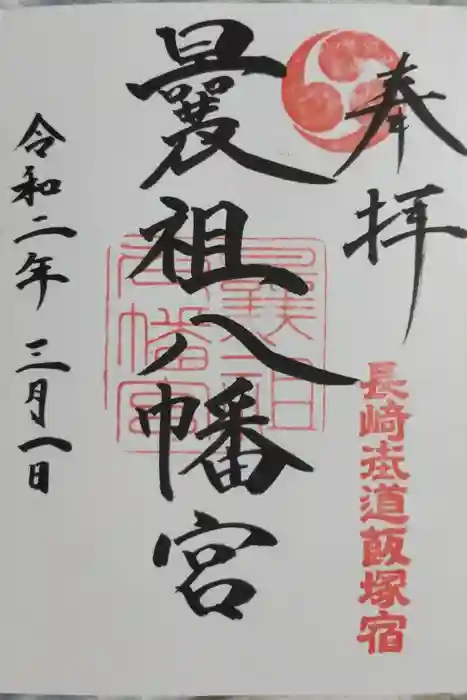 奉拝
長崎街道飯塚宿
曩祖八幡宮
曩祖八幡宮
令和二年 三月一日